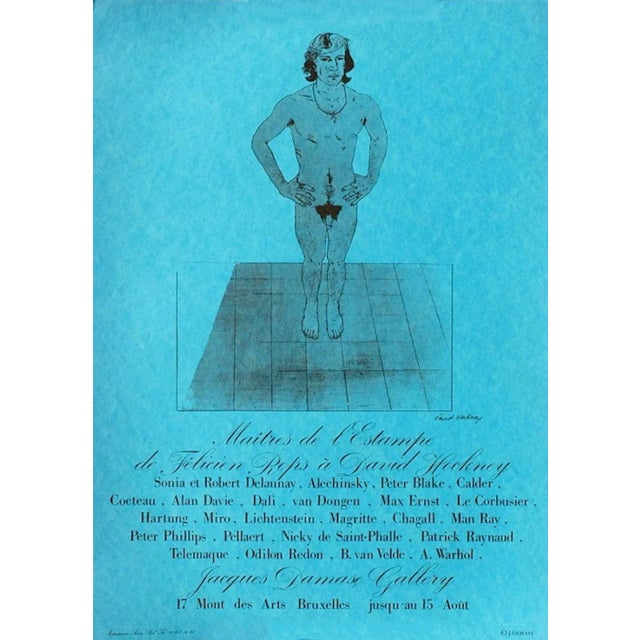 David Hockney
Maîtres de l'Estampe
de Félicien Rops à David Hockney
Sonia et Robert Delaunay , Alechinsky , Peter Blake , Calder ,
Cocteau , Alan Davie , Dali , van Dongen , Max Ernst , Le Corbusier ,
Hartung , Miro , Lichtenstein , Magritte , Chagall , Man Ray ,
Peter Phillips , Pellaert , Nicky de Saint-Phalle , Patrick Raynaud ,
Telemaque , Odilon Redon , B. van Velde , A. Warhol ,
Jacques Damase Gallery
17 Mont des Arts Bruxelles jusqu'au 15 Août
© J. DAMASE